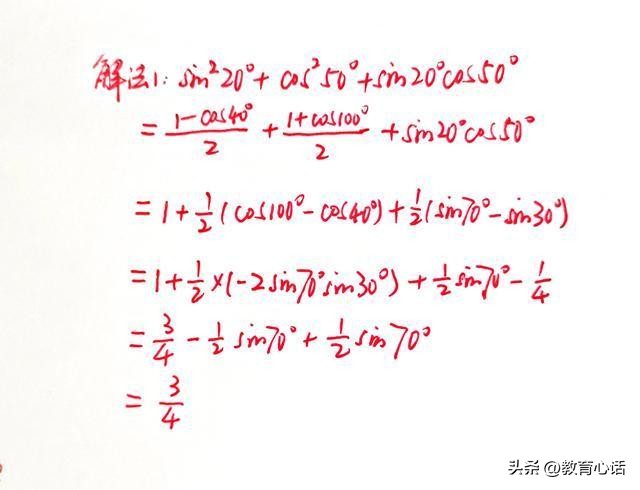 解法1: sin²20°+ cos²50°+sin20°cos50°
= \frac{1-cos40°}{2} + \frac{1+cos100°}{2} + sin20°cos50°
= 1 + \frac{1}{2}(cos100°-cos40°) + \frac{1}{2}(sin70°-sin30°)
= 1 + \frac{1}{2}×(-2sin70°sin30°) + \frac{1}{2}sin70° - \frac{1}{4}
= \frac{3}{4} - \frac{1}{2}sin70° + \frac{1}{2}sin70°
= \frac{3}{4}
头条 @教育心话